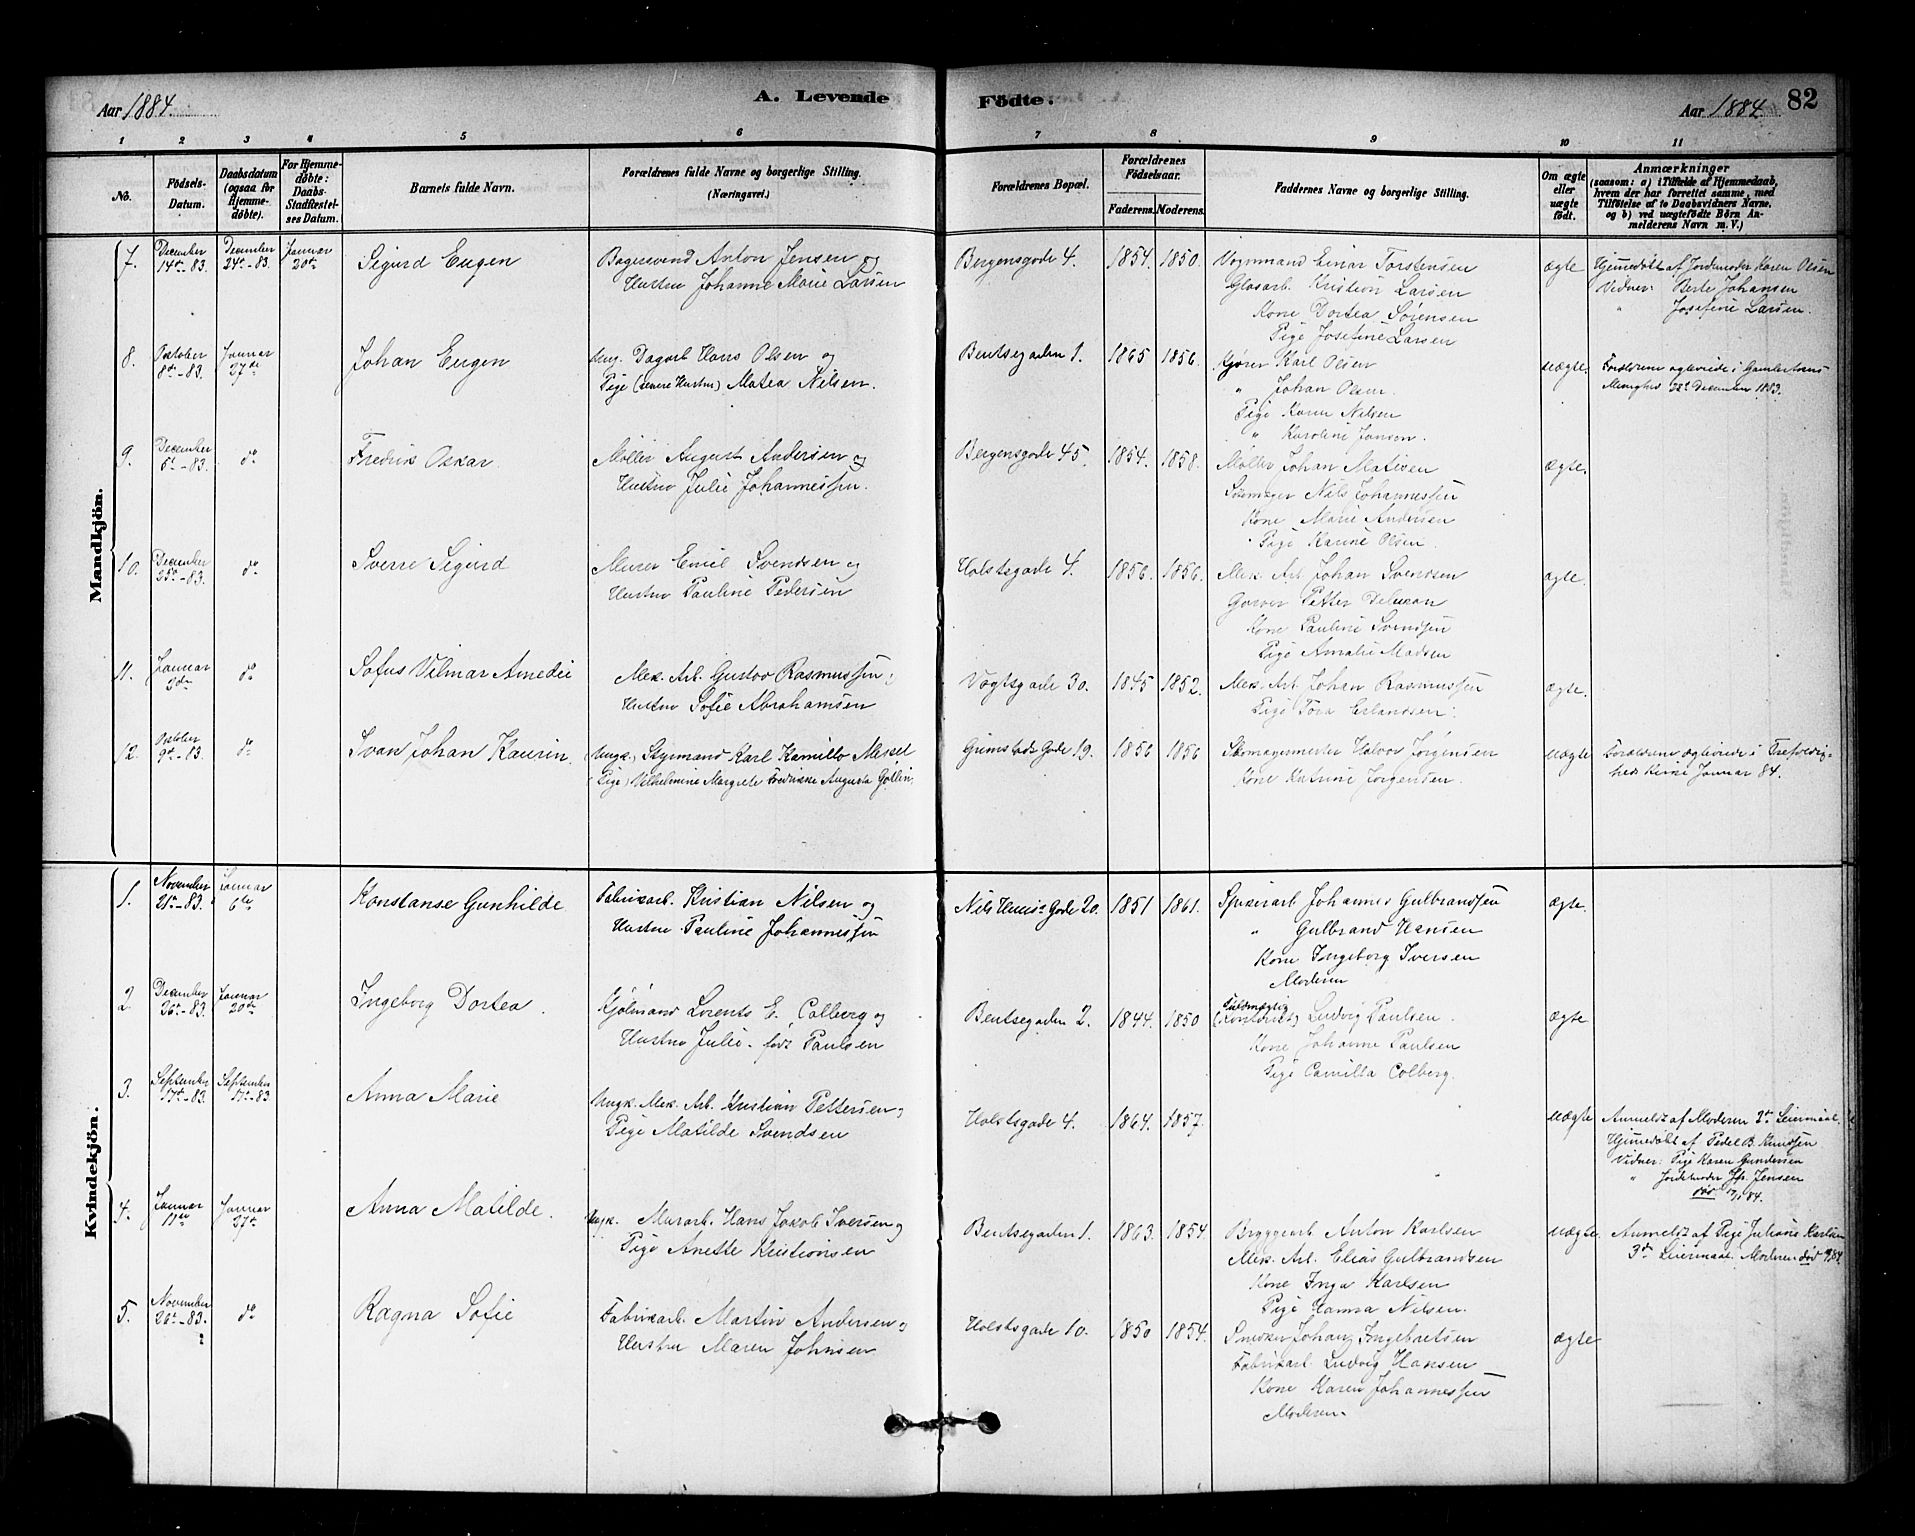 Aar 1884.
A. Levende Födte.
Aar 1884
82
1 2 3 4 5 6 7 8 9 10 11
No.
Födsels-Datum.
Daabsdatum (ogsaa for Hjemme-döbte).
For Hjemme-döbte: Daabs-Stadfæstel-ses Datum.
Barnets fulde Navn.
Forældrenes fulde Navne og borgerlige Stilling. (Næringsvei.)
Forældrenes Bopæl.
Forældrenes Födselsaar.
Faderens. Moderens.
Faddernes Navne og borgerlige Stilling.
Om ægte eller uægte födt.
Anmærkninger
(saasom: a) i Tilfælde af Hjemmedaab, hvem der har forrettet samme, med Tilföielse af to Daabsvidners Navne, og b) ved uægtefödte Börn Anmelderens Navn m. V.)
Mandkjön.
7. December 14de-83. December 24de-83. Januar 20de
Sigurd Eugen
Bagersvend Anton Jensen og
Hustru Johanne Marie Larsen
Bergensgade 4. 1854. 1850.
Vognmand Einar Torstensen
Glasarb. Kristian Larsen
Kone Dortea Sørensen
Pige Josefine Larsen
ægte
Hjemmedöbt af Jordemoder Karen Olsen
Vidner: Berte Johansen
" Josefine Larsen.
8. October 8de-83. Januar 27de
Johan Eugen
Ung. Dagarb. Hans Olsen og
Pige (senere Hustru) Matea Nilsen.
Bentsegaden 1. 1865 1856.
Kjører Karl Olsen
" Johan Olsen.
Pige Karen Nilsen
" Karoline Jansen.
uægte.
Forældrene ægteviede i Gamlebyens
Menighed 28de December 1883.
9. December 5te-83. do
Fredrik Oskar.
Møller August Andersen og
Hustru Julie Johannessen.
Bergensgade 45. 1854. 1858.
Møller Johan Matisen
Skomager Nils Johannessen
Kone Marie Andersen
Pige Karine Olsen.
ægte.
10. December 25de-83. do
Sverre Sigurd
Murer Emil Svendsen og
Hustru Pauline Pedersen
Holstsgade 4. 1856. 1856.
Mek. Arb. Johan Svendsen
Garver Petter
Kone Pauline Svendsen
Pige Amalie Madsen
ægte.
11. Januar 3de do
Sofus Vilmar Amedie
Mek. Arb. Gustav Rasmussen
Hustru Sofie Abrahamsen
Vogtsgade 30. 1845 1852.
Mek. Arb. Johan Rasmussen
Pige Tora Erlandsen.
ægte.
12. October 9de-83. do
Ivan Johan Kaurin.
(Ungk.) Styrmand Karl Kamillo Messel
(Pige) Vilhelmine Margrete Fredrikke Augusta
Grimstads Gade 19. 1856 1856
Skomagermester Halvor Jørgensen
Kone Katrine Jørgensen.
uægte
Forældrene ægteviede i Trefoldig-
heds Kirke Januar 84.
Kvindekjön.
1. November 21de-83. Januar 6te
Konstanse Gunhilde.
Fabrikarb. Kristian Nilsen og
Hustru Pauline Johannessen
Nils Gade 20. 1851 1861.
Spigerarb. Johannes Gulbrandsen
" Gulbrand Hansen
Kone Ingeborg Iversen
Moderen
ægte.
2. December 26de-83. Januar 20de
Ingeborg Dortea.
Kjølmand Lorents E. Colberg og
Hustru Julie født Paulsen
Bentsegaden 2. 1844. 1850
Fuldmægtig
Ludvig Paulsen.
Kone Johanne Paulsen
Pige Camilla Colberg.
ægte
3. September 17de-83. September 17de-83
Anna Marie
Ungk. Mek. Arb. Kristian Pettersen og
Pige Matilde Svendsen
Holstsgade 4. 1864. 1857.
uægte
Anmeldt af Moderen 3de Leiermaal.
Hjemmedöbt af Pedel B. Knudsen
Vidner: Pige Karen Gundersen
" Jordemoder Jensen
død 84.
4. Januar 11te Januar 27de
Anna Matilde.
Ungk. Murarb. Hans Jakob Iversen og
Pige Anette Kristiansen
Bentsegaden 1. 1863. 1854.
Bryggearb. Anton Karlsen
Mek. Arb. Elias Gulbrandsen
Kone Inga Karlsen
Pige Hanna Nilsen.
uægte.
Anmeldt af Pige Juliane Karlsen
3de Leiermaal. Moderen død 84.
5. November 26de-83. ? do
Ragna Sofie
Fabrikarb. Martin Andersen og
Hustru Maren Johnsen
Holstsgade 10. 1850 1854.
Snedker Johan Ingebretsen
Fabrikarb. Ludvig Hansen
Kone Karen Johannessen
Moderen.
ægte